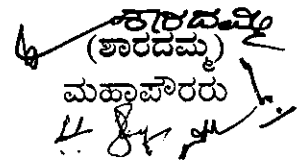 ಶಾರದಮ್ಮ
(ಶಾರದಮ್ಮ)
ಮಹಾಪೌರರು